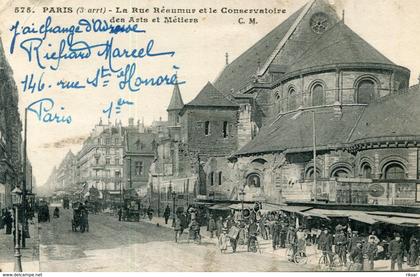 578. PARIS (3e arrt) - La Rue Réaumur et le Conservatoire
des Arts et Métiers C. M.
J'ai changé d'adresse
Richard Marcel
146, rue St Honoré
Paris 1er